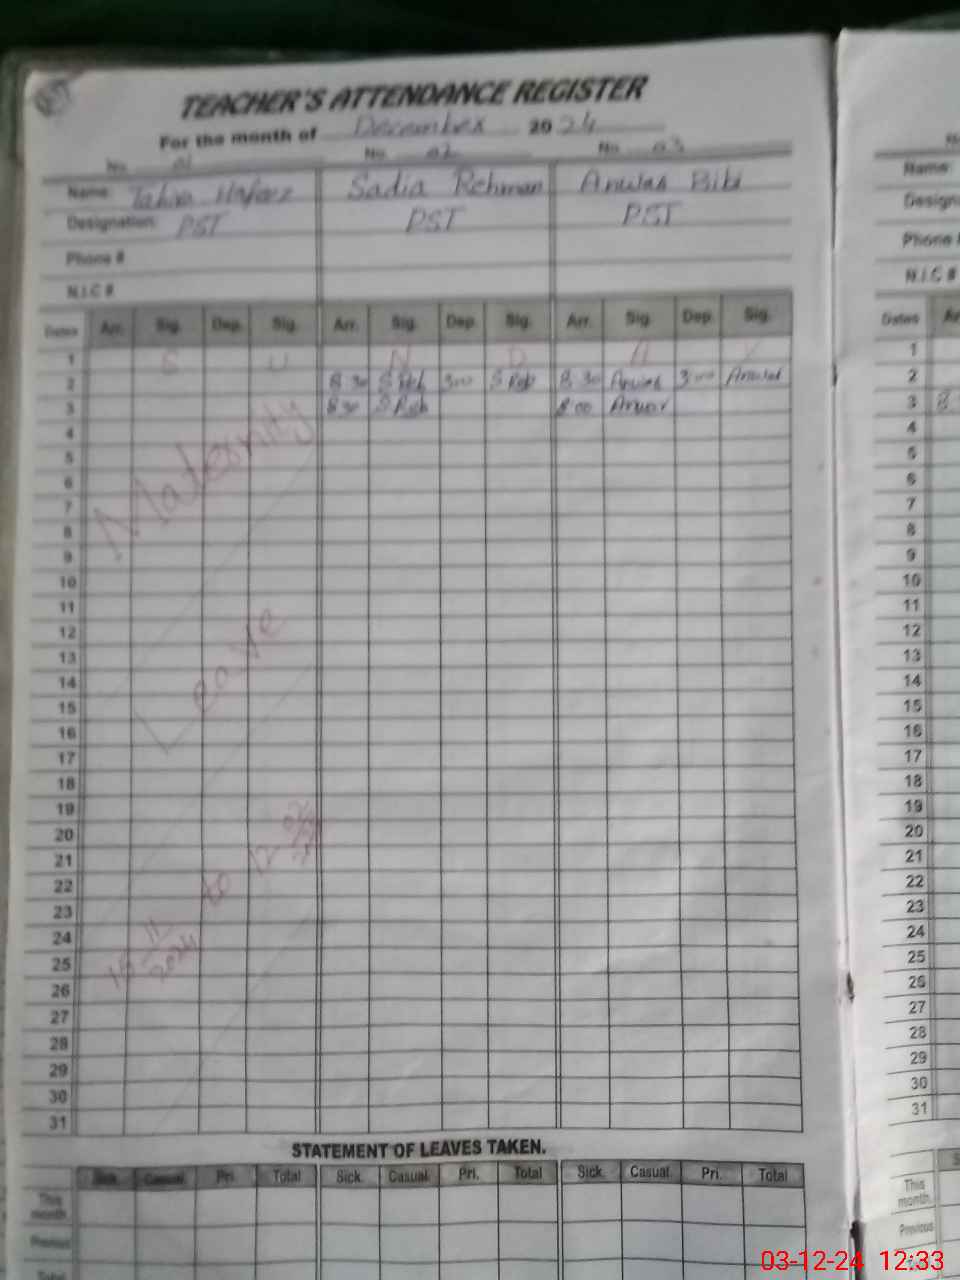 TEACHER'S ATTENDANCE REGISTER
For the month of December 2024
No. 01 No. 02 No. 03
Name: Sadia Rehman Bibi
Designation: PST PST PST
Phone #
N.I.C #
Dates Arr. Sig. Dep. Sig. Arr. Sig. Dep. Sig. Arr. Sig. Dep. Sig.
1 S U N D A Y
2 8:30 S Reh 3:00 S Reh 8:30 3:00
3 8:30 S Reh 8:00
4
5
6
7
8
9
10
11
12
13
14
15
16
17
18
19
20
21
22
23
24
25
26
27
28
29
30
31
Maternity
Leave
11/2024 to 12
STATEMENT OF LEAVES TAKEN.
Sick. Casual Pri. Total Sick. Casual. Pri. Total Sick. Casual. Pri. Total
This month.
Previous
Total
No.
Name:
Design
Phone #
N.I.C #
Dates Ar
1
2
3 8
4
5
6
7
8
9
10
11
12
13
14
15
16
17
18
19
20
21
22
23
24
25
26
27
28
29
30
31
S
This month.
Previous
03-12-24 12:33